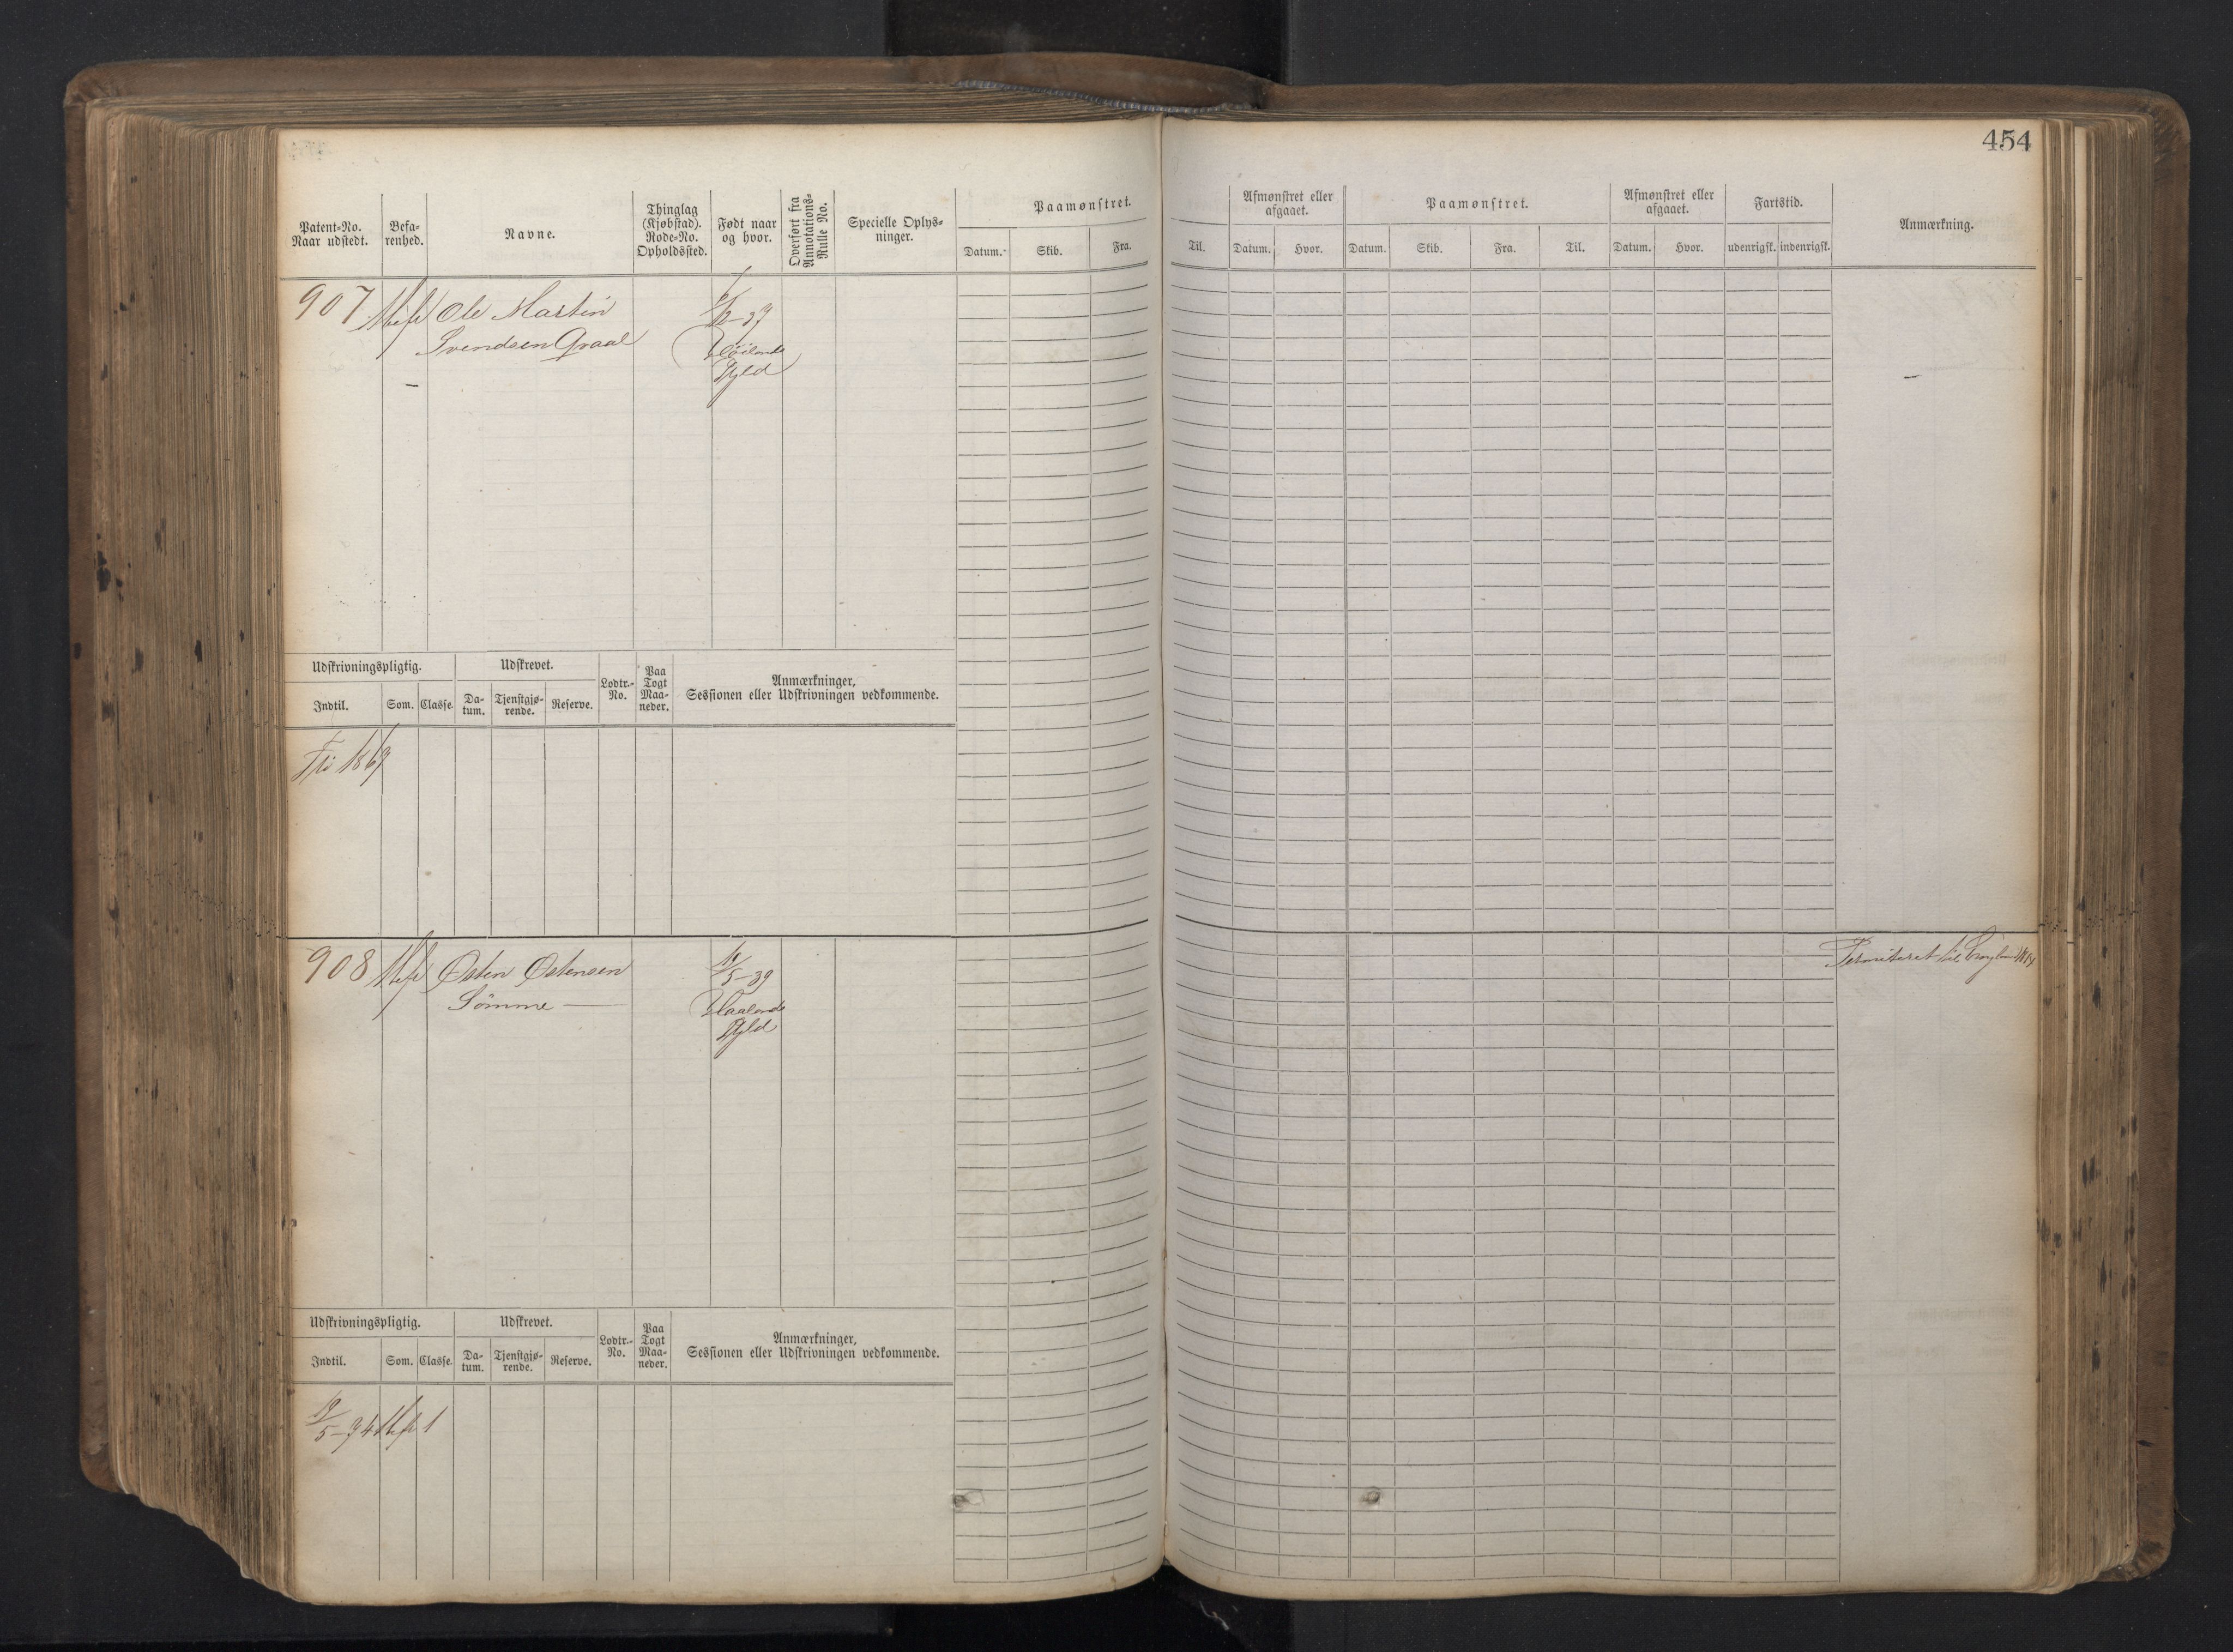 454
Patent-No.
Naar udstedt.
Befa-
renhed.
Navne.
Thinglag
(Kjøbstad).
Rode-No.
Opholdssted.
Født naar
og hvor.
Overført fra
Annotations-
Rulle No.
Specielle Oplys-
ninger.
Paamønstret.
Datum.
Skib.
Fra.
Til.
Afmønstret eller
afgaaet.
Datum.
Hvor.
Paamønstret.
Datum.
Skib.
Fra.
Til.
Afmønstret eller
afgaaet.
Datum.
Hvor.
Fartstid.
udenrigsk.
indenrigsk.
Anmærkning.
907
Ole Martin
Svendsen Graal
Høilands
Pgld
Udskrivningspligtig.
Indtil.
Som.
Classe.
Udskrevet.
Da-
tum.
Tjenstgjø-
rende.
Reserve.
Lodtr.-
No.
Paa
Togt
Maa-
neder.
Anmærkninger,
Sessionen eller Udskrivningen vedkommende.
Fri 1869
908
Østen Østensen
Sömme
5-39
Haalands
Pgld
Udskrivningspligtig.
Indtil.
Som.
Classe.
Udskrevet.
Da-
tum.
Tjenstgjø-
rende.
Reserve.
Lodtr.-
No.
Paa
Togt
Maa-
neder.
Anmærkninger,
Sessionen eller Udskrivningen vedkommende.
1